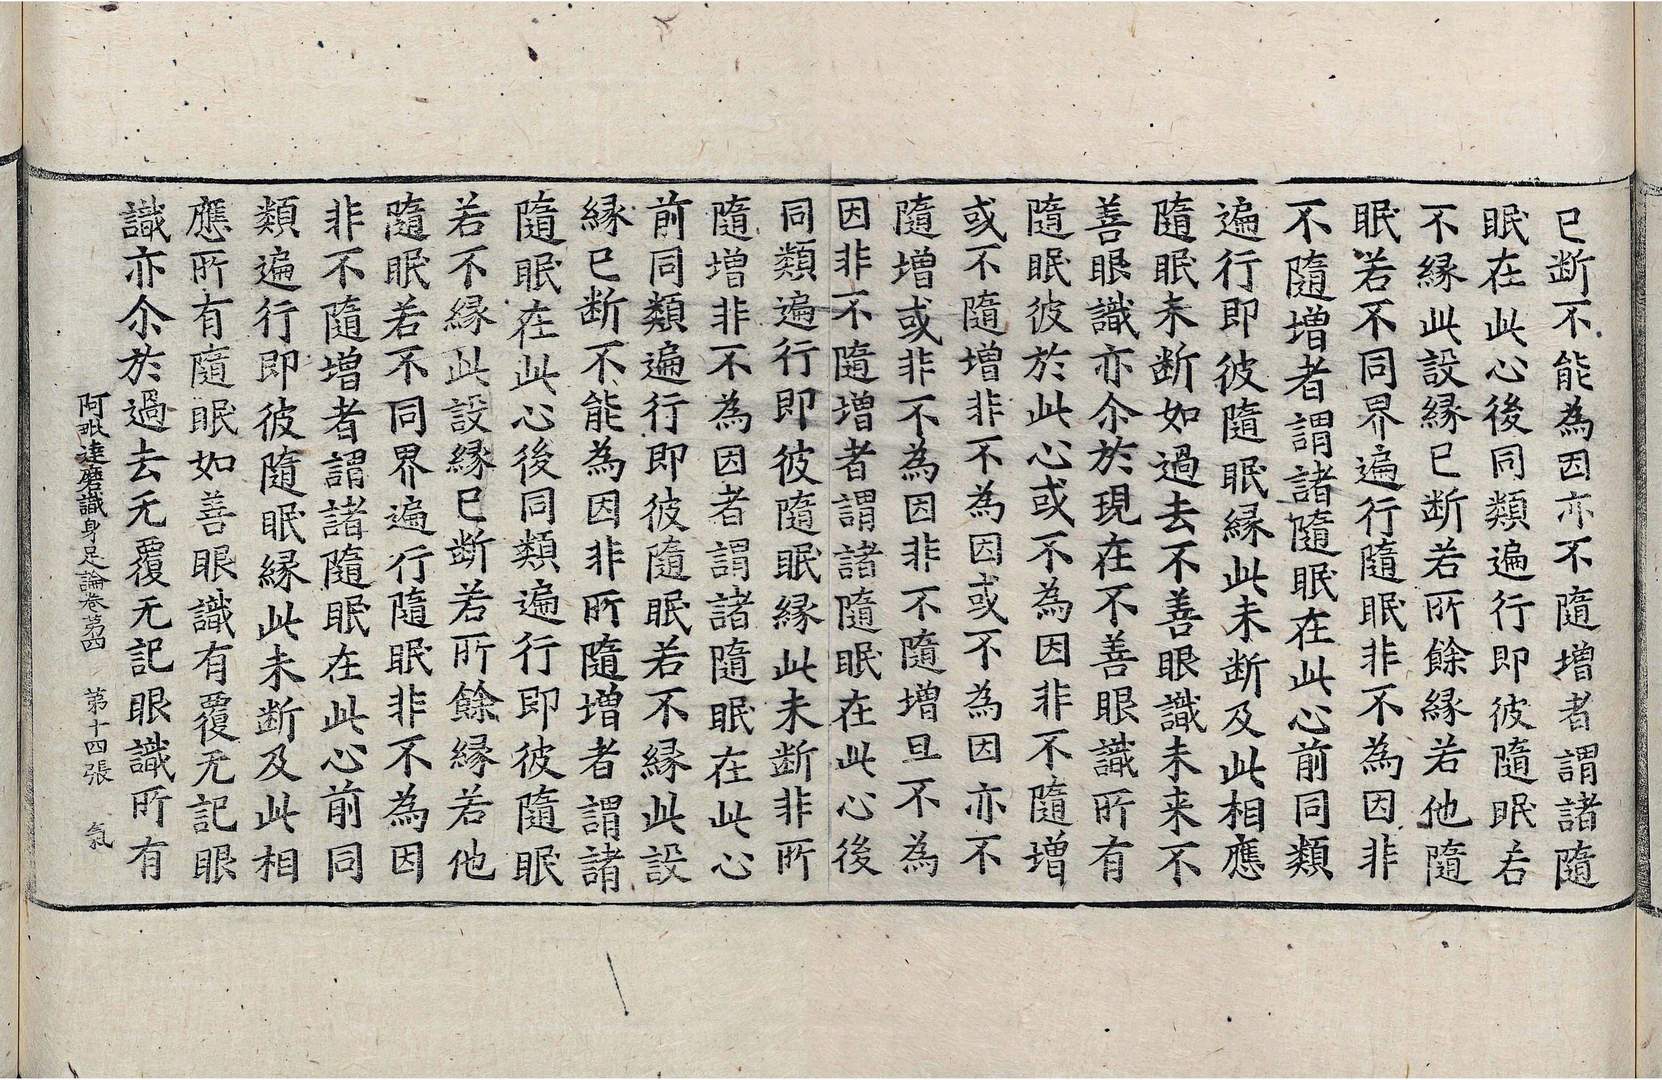 已断不能為因亦不隨增者謂諸隨
眠在此心後同類遍行即彼隨眠若
不縁此設縁已断若所餘縁若他隨
眠若不同界遍行隨眠非不為因非
不隨增者謂諸隨眠在此心前同類
遍行即彼隨眠縁此未断及此相應
隨眠未断如過去不善眼識未来不
善眼識亦尒於現在不善眼識所有
隨眠彼於此心或不為因非不隨增
或不隨增非不為因或不為因亦不
隨增或非不為因非不隨增且不為
因非不隨增者謂諸隨眠在此心後
同類遍行即彼隨眠縁此未断非所
隨增非不為因者謂諸隨眠在此心
前同類遍行即彼隨眠若不縁此設
縁已断不能為因非所隨增者謂諸
隨眠在此心後同類遍行即彼隨眠
若不縁此設縁已断若所餘縁若他
隨眠若不同界遍行隨眠非不為因
非不隨增者謂諸隨眠在此心前同
類遍行即彼隨眠縁此未断及此相
應所有隨眠如善眼識有覆无記眼
識亦尒於過去无覆无記眼識所有
阿毗達磨識身足論卷第四 第十四張 氣